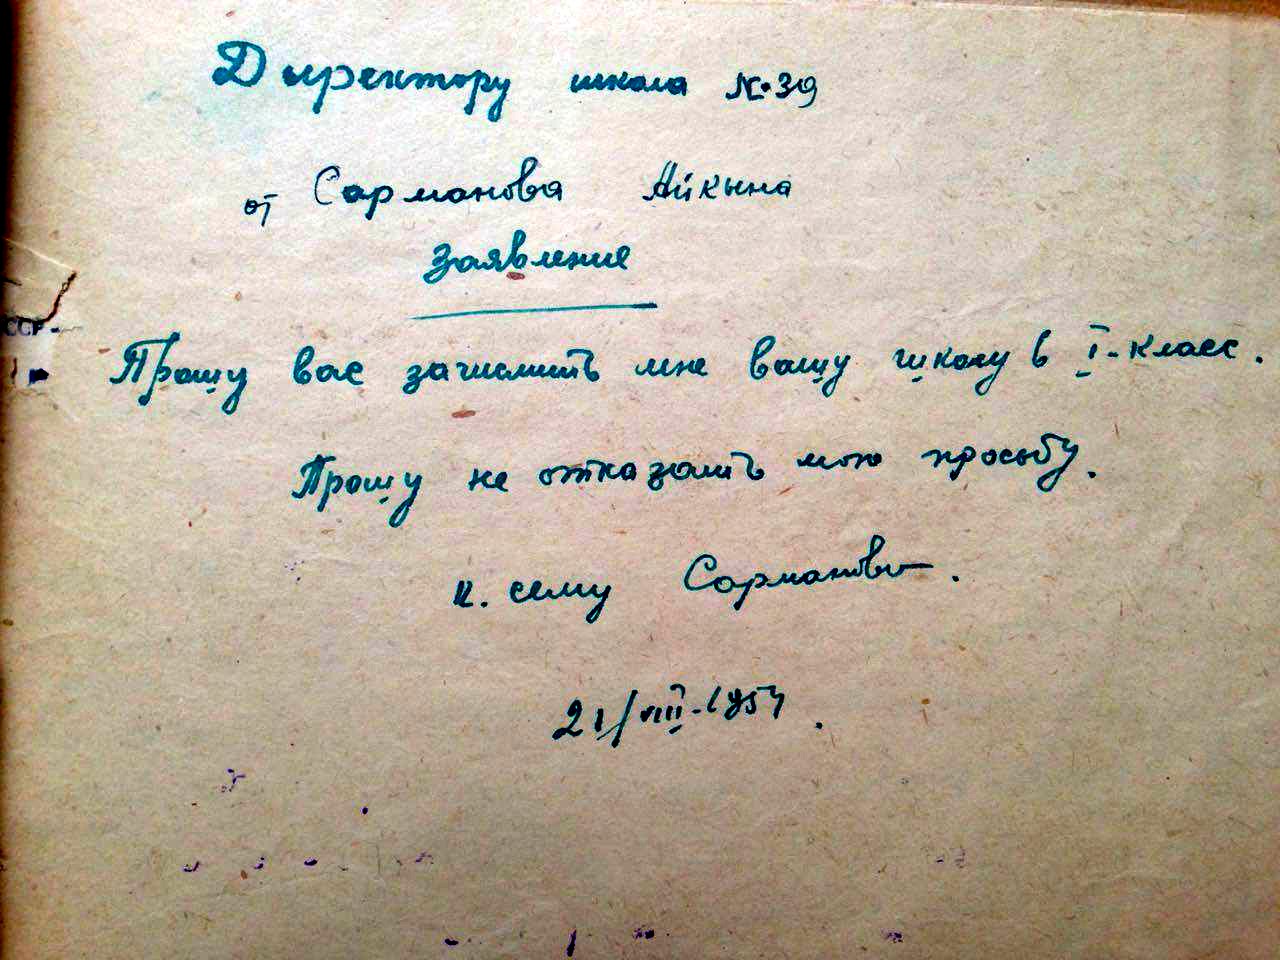 Директору школа №39
от Сарманова Айкына
Заявление
ССР-
Прошу вас зачислить мне вашу школу в I-класс.
Прошу не отказать мою просьбу.
к. сему Сарманов.
21/VIII-1957.